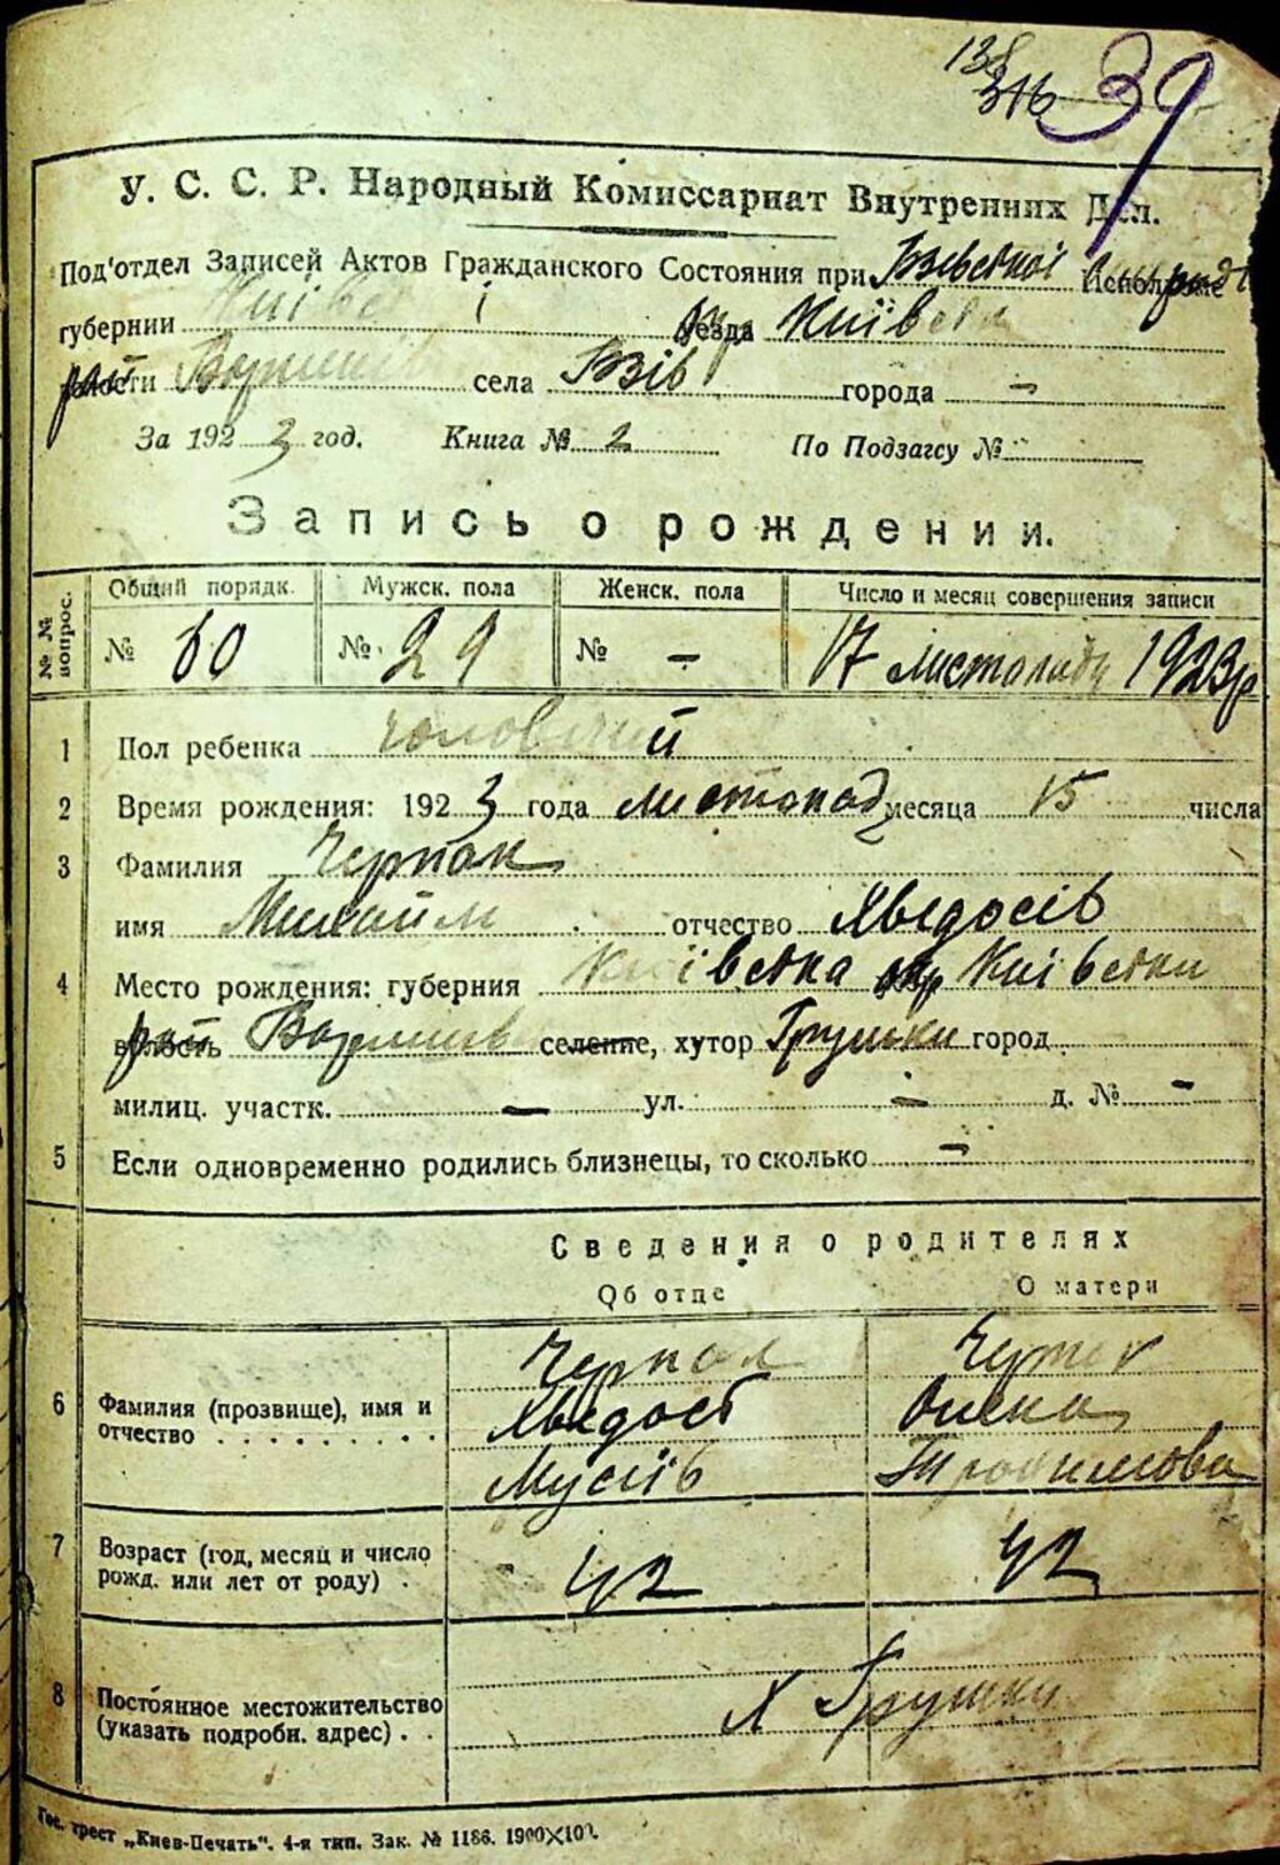 138
316 39
У. С. С. Р. Народный Комиссариат Внутренних Дел.
Под'отдел Записей Актов Гражданского Состояния при Взівської
губернии Київс і уезда Київська
волости рай села Бзів города —
За 1923 год. Книга № 2 По Подзагсу №
Запись о рождении.
№ № вопрос. Общий порядк. Мужск. пола Женск. пола Число и месяц совершения записи
№ 60 № 29 № — 17 Листопаду 1923р
1 Пол ребенка чоловічий
2 Время рождения: 1923 года листопад месяца 15 числа
3 Фамилия Черпак
имя Михайло отчество Явдосів
4 Место рождения: губерния Київська окр Київська
волость рай селение, хутор Грушки город
милиц. участк. — ул. — д. № —
5 Если одновременно родились близнецы, то сколько —
Сведения о родителях
Об отце О матери
Черпак Черпак
6 Фамилия (прозвище), имя и Олена
отчество Мусіїв
7 Возраст (год, месяц и число
рожд. или лет от роду) . 42 42
8 Постоянное местожительство Х Грушки
(указать подробн. адрес) . .
Гос. трест „Киев-Печать". 4-я тип. Зак. № 1186. 1900×100.